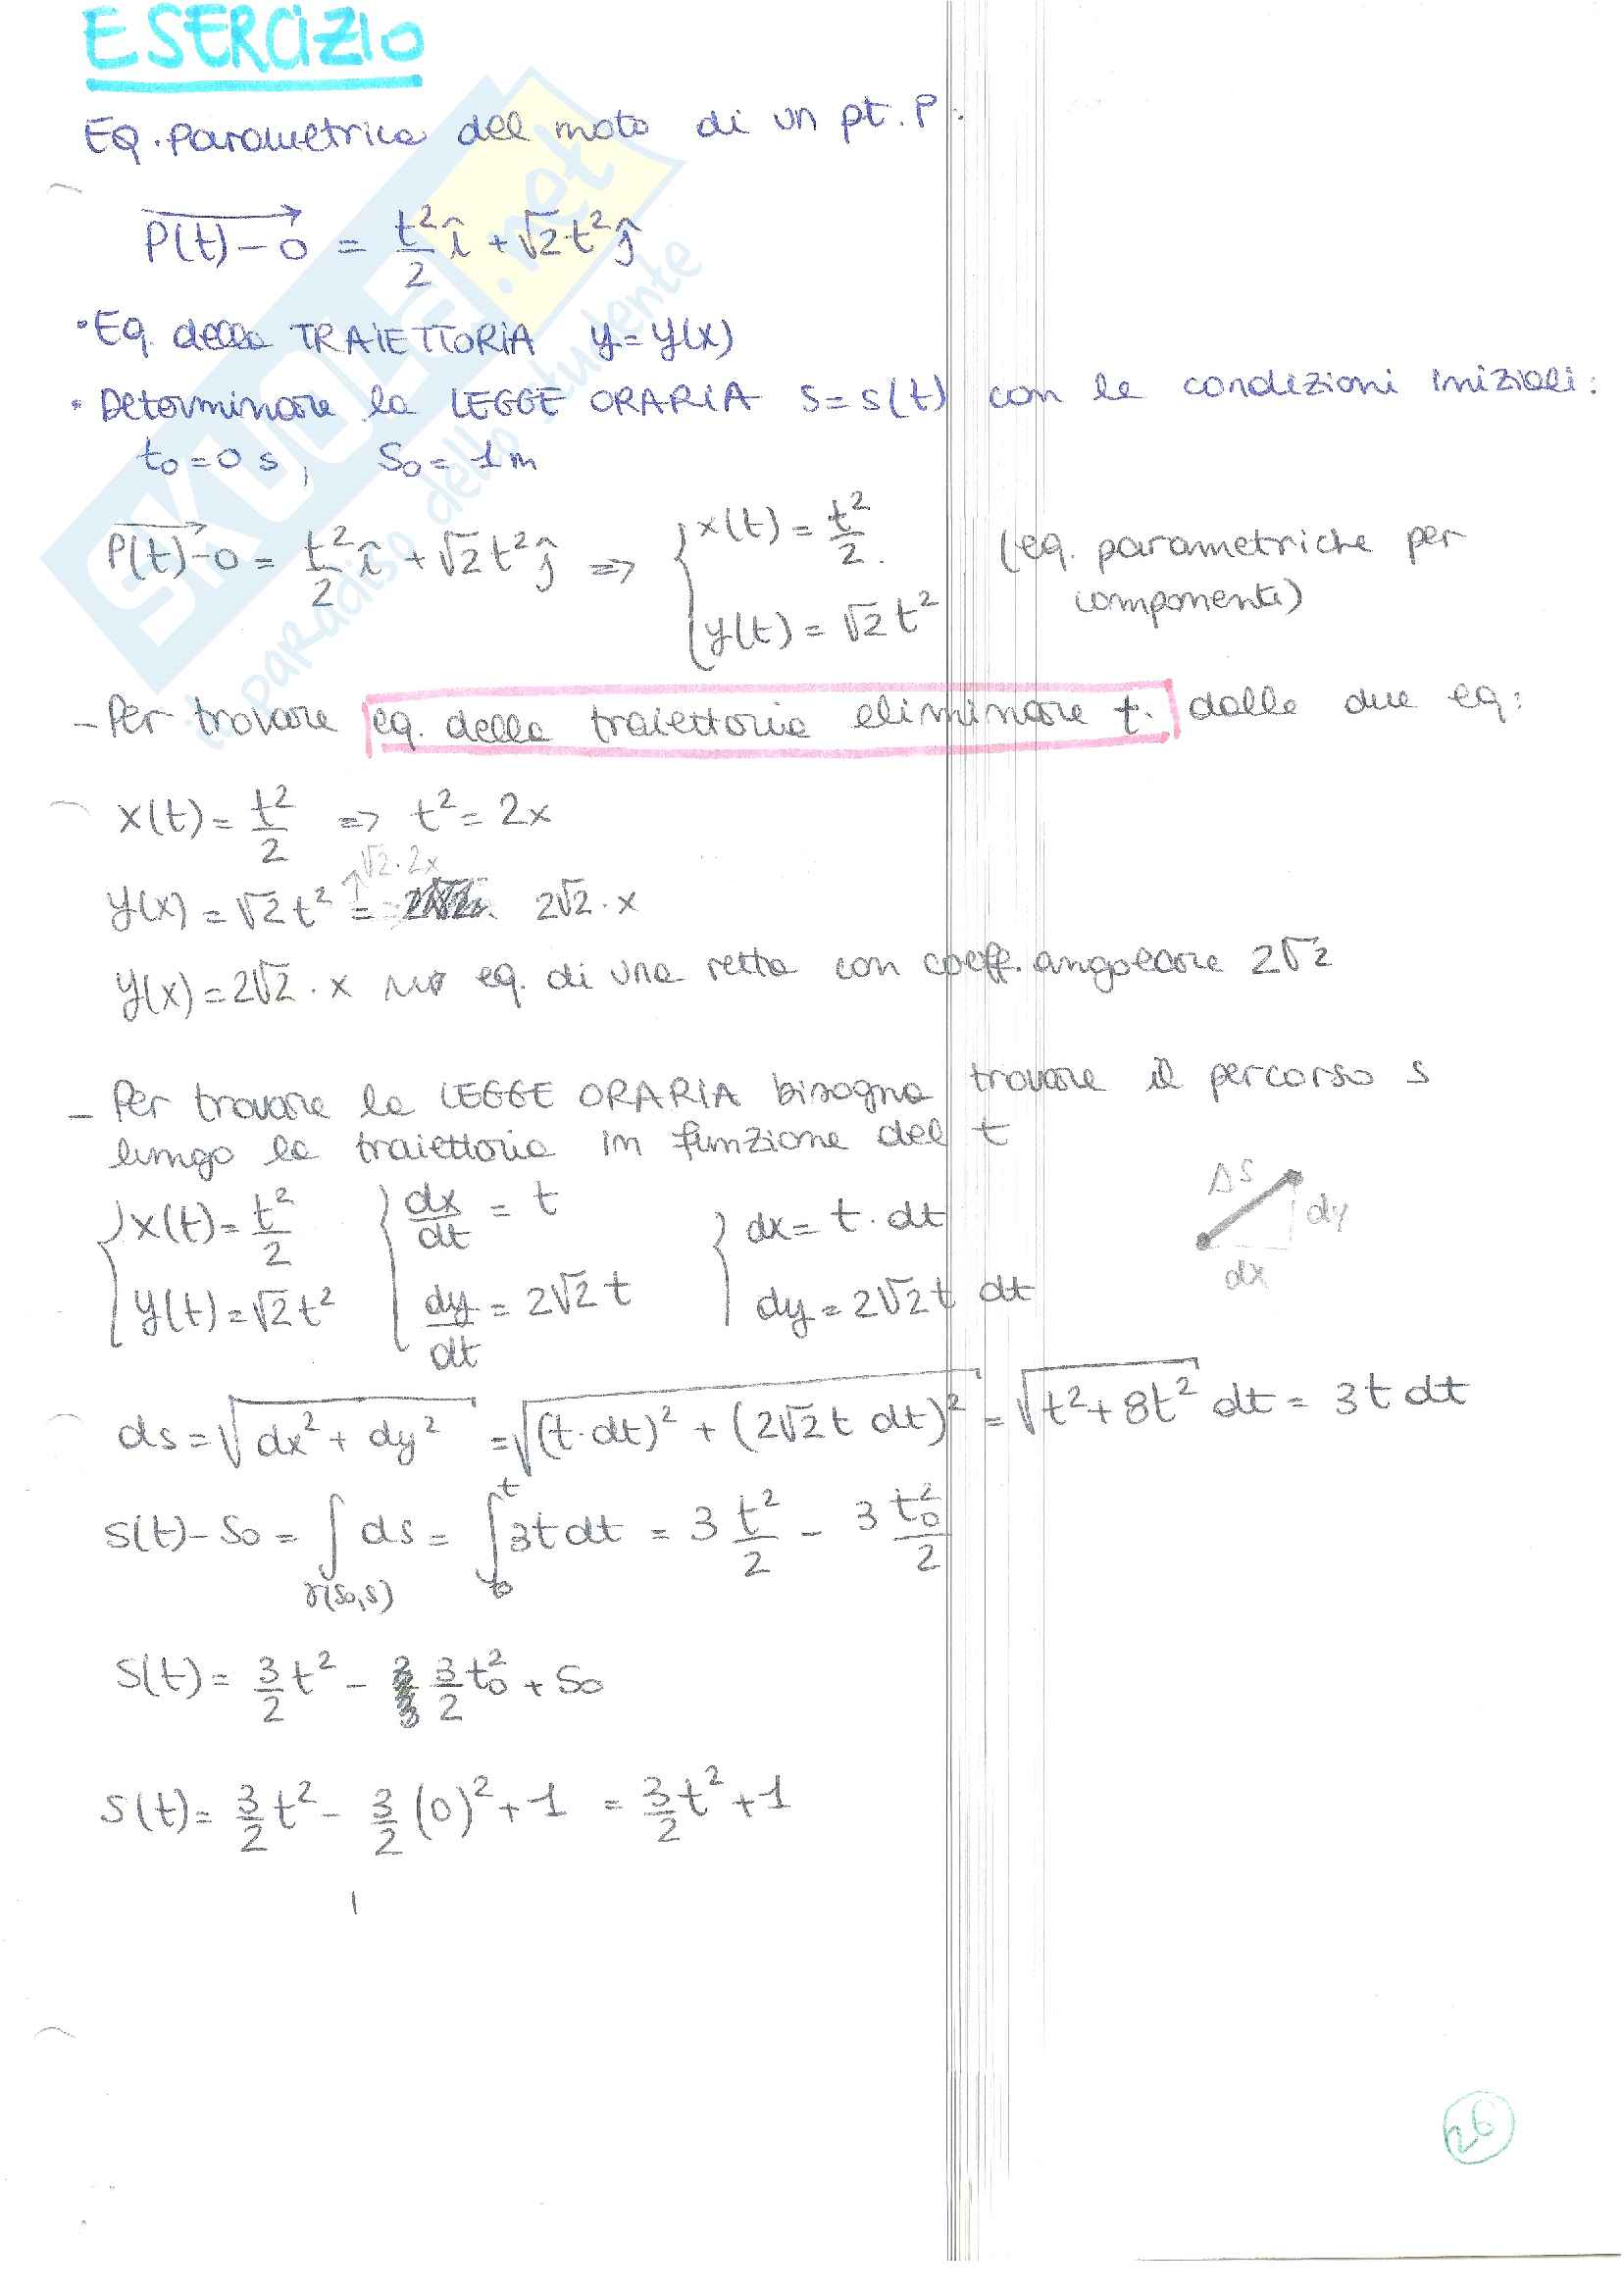 ESERCIZIO
EQ. parametrica del moto di un pt. P:
P(t)-O = t²/2 î + √2 t² ĵ
• Eq. della TRAIETTORIA y = y(x)
• Determinare la LEGGE ORARIA s = s(t) con le condizioni iniziali:
t₀ = 0 s, S₀ = 1 m
P(t)-O = t²/2 î + √2 t² ĵ => { x(t) = t²/2. (eq. parametriche per
y(t) = √2 t² componenti)
- Per trovare eq. della traiettoria eliminare t. dalle due eq:
x(t) = t²/2 => t² = 2x
√2 · 2x
y(x) = √2 t² = 2√2 · x
y(x) = 2√2 · x ⇝ eq. di una retta con coeff. angolare 2√2
- Per trovare la LEGGE ORARIA bisogna trovare il percorso s
lungo la traiettoria in funzione del t
{ x(t) = t²/2 { dx/dt = t { dx = t · dt
y(t) = √2 t² dy/dt = 2√2 t dy = 2√2 t dt
ΔS
dy
dx
ds = √(dx² + dy²) = √((t · dt)² + (2√2 t dt)²) = √(t² + 8t²) dt = 3t dt
S(t) - S₀ = ∫γ(S₀,S) ds = ∫t₀^t 3t dt = 3 t²/2 - 3 t₀²/2
S(t) = 3/2 t² - 3/2 t₀² + S₀
S(t) = 3/2 t² - 3/2 (0)² + 1 = 3/2 t² + 1
26
SKUOLA.net
il paradiso dello studente